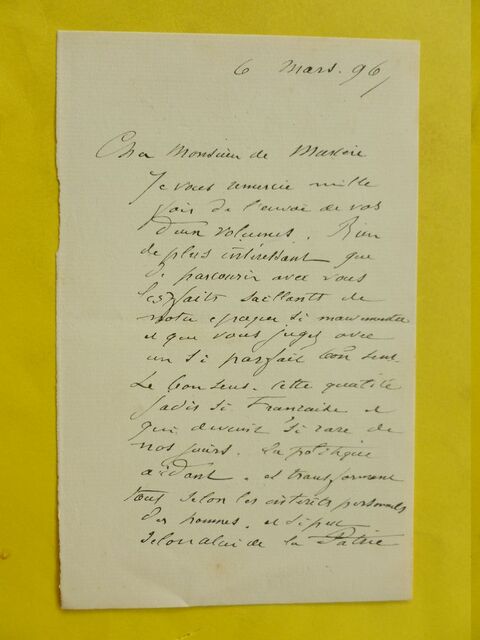 6 Mars. 96
Cher Monsieur de Marcère
Je vous remercie mille
fois de l'envoi de vos
deux volumes. Rien
de plus intéressant que
de parcourir avec vous
les faits saillants de
notre époque si
et que vous jugez avec
un si parfait bon sens
Le bon sens. cette qualité
jadis si Française et
qui devient si rare de
nos jours. La politique
aidant. et transformant
tout selon les intérêts personnels
des hommes. et si peu
selon de la Patrie